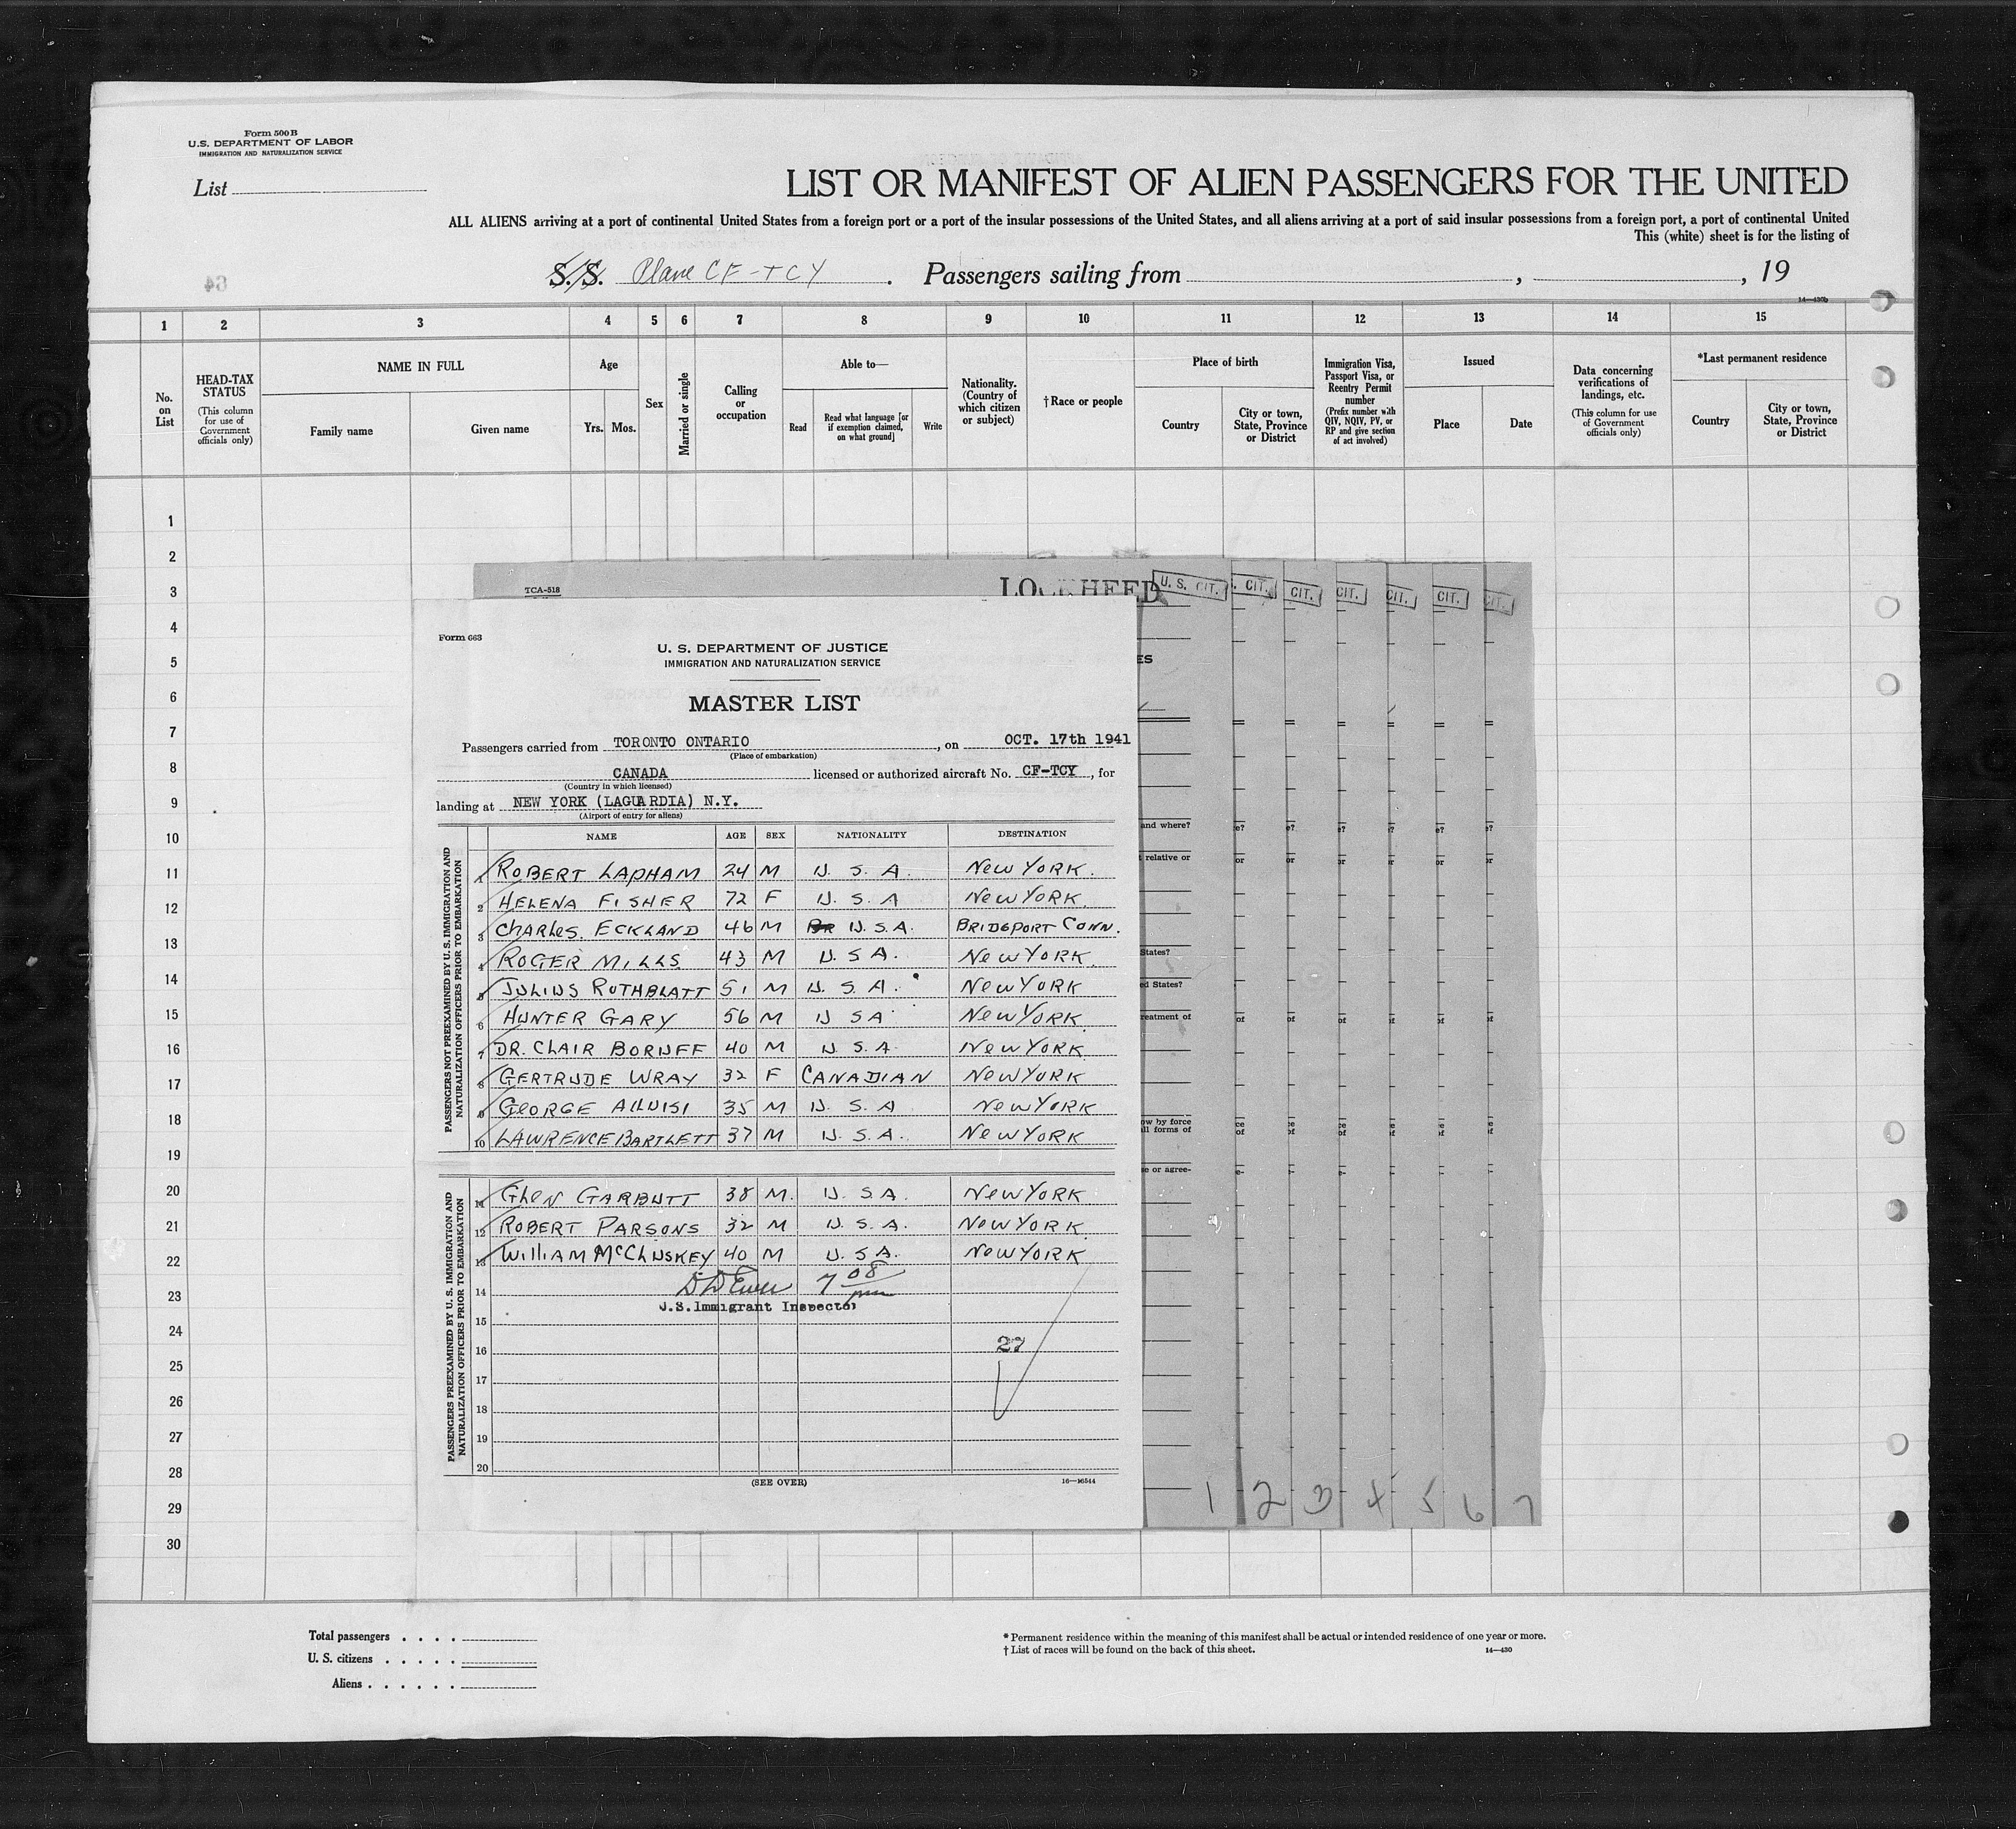 Form 500 B
U.S. DEPARTMENT OF LABOR
IMMIGRATION AND NATURALIZATION SERVICE
List
LIST OR MANIFEST OF ALIEN PASSENGERS FOR THE UNITED
ALL ALIENS arriving at a port of continental United States from a foreign port or a port of the insular possessions of the United States, and all aliens arriving at a port of said insular possessions from a foreign port, a port of continental United
This (white) sheet is for the listing of
S.S. Plane CF-TCY . Passengers sailing from , , 19
64
14—430b
1 2 3 4 5 6 7 8 9 10 11 12 13 14 15
No. on List
HEAD-TAX STATUS
(This column for use of Government officials only)
NAME IN FULL
Family name Given name
Age
Yrs. Mos.
Sex
Married or single
Calling or occupation
Able to—
Read
Read what language [or if exemption claimed, on what ground]
Write
Nationality. (Country of which citizen or subject)
† Race or people
Place of birth
Country
City or town, State, Province or District
Immigration Visa, Passport Visa, or Reentry Permit number
(Prefix number with QIV, NQIV, PV, or RP and give section of act involved)
Issued
Place Date
Data concerning verifications of landings, etc.
(This column for use of Government officials only)
*Last permanent residence
Country
City or town, State, Province or District
1
2
3
4
5
6
7
8
9
10
11
12
13
14
15
16
17
18
19
20
21
22
23
24
25
26
27
28
29
30
TCA-518
LOCKHEED
U. S. CIT. . CIT. CIT. CIT. CIT. CIT. CIT.
Form 663
U. S. DEPARTMENT OF JUSTICE
IMMIGRATION AND NATURALIZATION SERVICE
MASTER LIST
Passengers carried from TORONTO ONTARIO, on OCT. 17th 1941
(Place of embarkation)
CANADA licensed or authorized aircraft No. CF-TCY, for
(Country in which licensed)
landing at NEW YORK (LAGUARDIA) N.Y.
(Airport of entry for aliens)
NAME AGE SEX NATIONALITY DESTINATION
PASSENGERS NOT PREEXAMINED BY U. S. IMMIGRATION AND NATURALIZATION OFFICERS PRIOR TO EMBARKATION
1 ROBERT LAPHAM 24 M U. S. A. NEW YORK.
2 HELENA FISHER 72 F U. S. A NEW YORK.
3 CHARLES. ECKLAND 46 M BR U.S.A. BRIDGPORT CONN.
4 ROGER MILLS 43 M U. S A. NEW YORK.
5 JULIUS ROTHBLATT 51 M U. S. A. NEW YORK
6 HUNTER GARY 56 M U S A NEW YORK.
7 DR. CLAIR BORUFF 40 M U. S. A. NEW YORK
8 GERTRUDE WRAY 32 F CANADIAN NEW YORK
9 GEORGE ALLUISI 35 M U. S. A NEW YORK
10 LAWRENCE BARTLETT 37 M U. S. A. NEW YORK
PASSENGERS PREEXAMINED BY U. S. IMMIGRATION AND NATURALIZATION OFFICERS PRIOR TO EMBARKATION
11 GLEN GARBUTT 38 M. U. S. A. NEW YORK
12 ROBERT PARSONS 32 M U. S. A. NEW YORK.
13 WILLIAM McCLUSKEY 40 M U. S A. NEW YORK
14 7 08 pm
U.S. Immigrant Inspector
15
16
17
18
19
20
(SEE OVER)
16—16544
ES
and where? e? e? e? e? e? e?
t relative or or or or or or or
States?
ed States?
reatment of of of of of of of
ow by force ce ce ce ce ce ce
ll forms of of of of of of of
e or agree- e- e- e- e- e- e-
1 2 3 4 5 6 7
Total passengers . . . .
U. S. citizens . . . . .
Aliens . . . . . .
* Permanent residence within the meaning of this manifest shall be actual or intended residence of one year or more.
† List of races will be found on the back of this sheet.
14—430